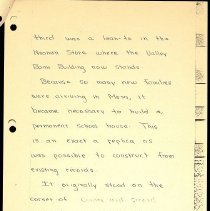 third was a lean-to in the
Brown Store where the Valley
Bank Building now stands.
Because so many new families
were arriving in Mesa, it
became necessary to build a
permanent school house. This
is an exact a replica as
was possible to construct from
existing records.
It originally stood on the
corner of Center and